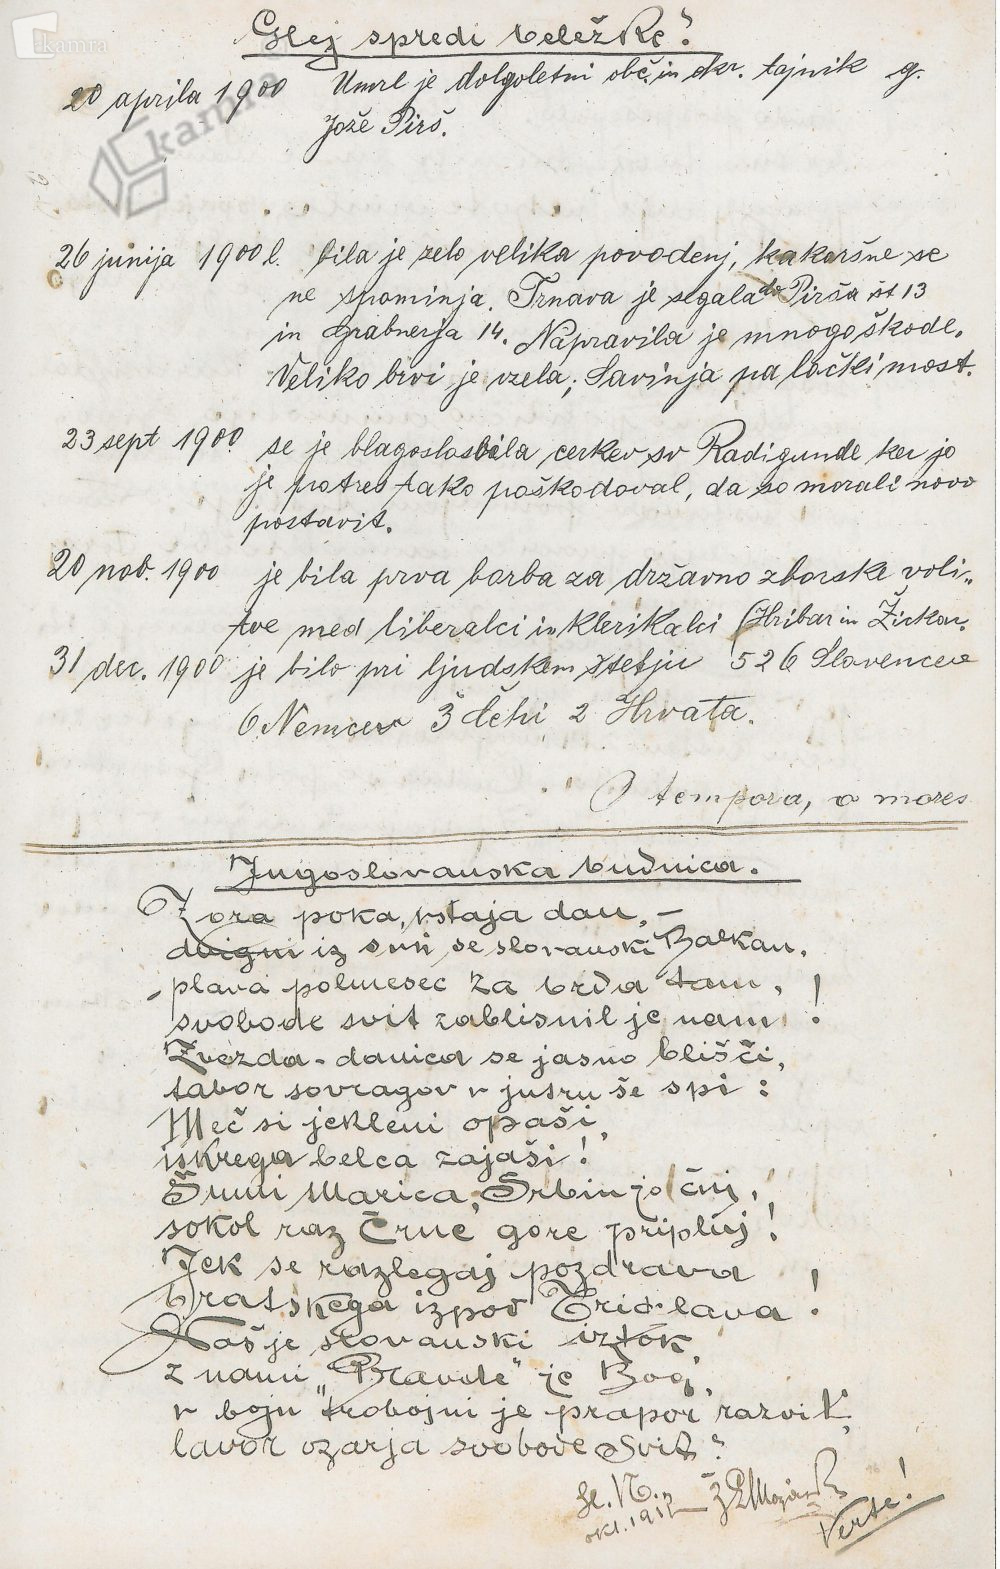 Glej spredi beležke!
20 aprila 1900 Umrl je dolgoletni obč. in okr. tajnik g.
Jože Pirš.
26 junija 1900 l. bila je zelo velika povodenj, kakoršne se
ne spominja. Trnava je segala do Pirša št 13
in Grabnerja 14. Napravila je mnogo škode.
Veliko brvi je vzela; Savinja pa ločki most.
23 sept 1900. se je blagoslovila cerkev sv Radigunde ker jo
je potres tako poškodoval, da so morali novo
postavit.
20 nob. 1900 je bila prva borba za državno zborske voli-
tve med liberalci in klerikalci (Hribar in Žičkar.
31 dec. 1900 je bilo pri ljudskem štetju 526 Slovencev
6 Nemcev 3 Čehi 2 Hrvata.
O tempora, o mores
Jugoslovanska budnica.
Zora poka, vstaja dan, –
dvigni iz sna se slovanski Balkan.
plava polmesec za brda tam,
svobode svit zablisnil je nam!
Zvezda-danica se jasno blišči,
tabor sovragov v jutru še spi:
Meč si jekleni opaši,
iskrega belca zajaši!
Šumi Marica, Srbin jo čuj,
sokol raz Črne gore pripluj!
Jek se razlegaj pozdrava
bratskega izpod Triglava!
Naš je slovanski iztok
z nami "Pravde" je Bog,
v boju "trobojni je prapor razvit,
lavor ozarja svobode svit!
Sl. N.
okt. 1912
Verte!
ekamra
kamra